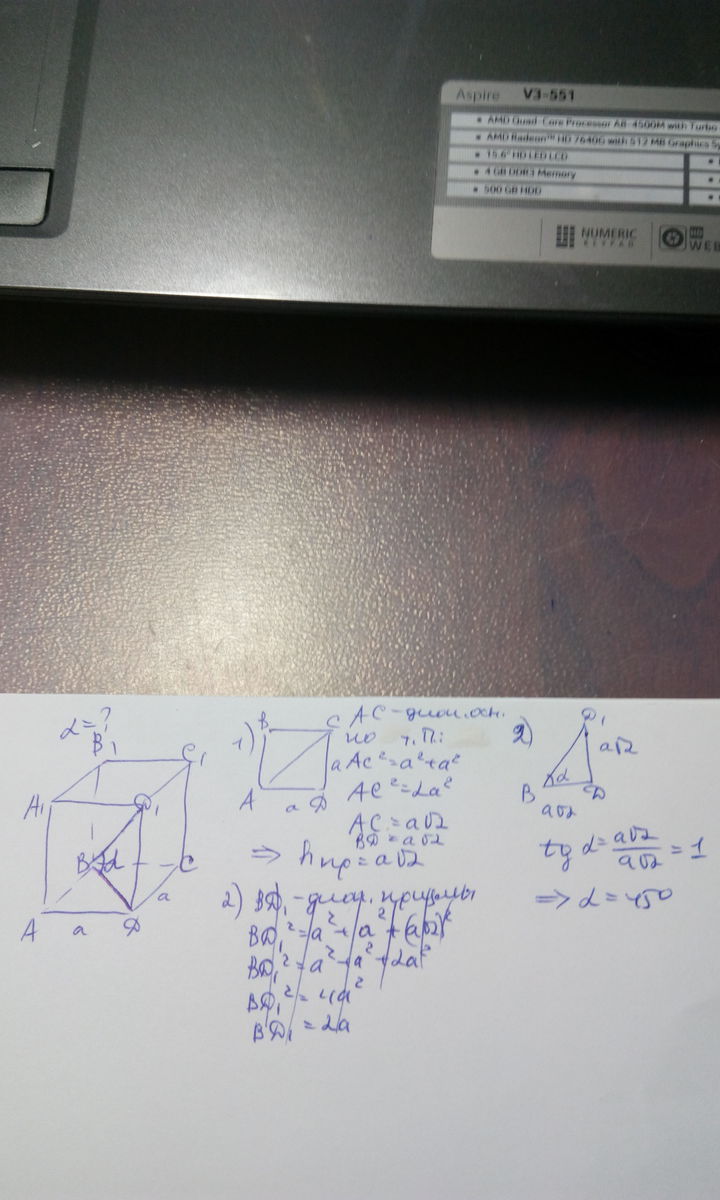 Aspire V3-551
AMD Quad-Core Processor A8-4500M with Turbo
AMD Radeon™ HD 7640G with 512 MB Graphics Sy
15.6" HD LED LCD
4 GB DDR3 Memory
500 GB HDD
NUMERIC
KEYPAD
HD
WEB
α=?
B1
C1
A1
D1
B α C
a
A a D
1)
B C
a
A a D
AC - диаг. осн.
по т.П:
AC²=a²+a²
AC²=2a²
AC=a√2
BD=a√2
⇒ hпр=a√2
2) BD1 - диаг. призмы
BD1²=a²+a²+(a√2)²
BD1²=a²+a²+2a²
BD1²=4a²
BD1=2a
2)
D1
a√2
B α D
a√2
tg α=a√2/a√2=1
⇒ α=45°